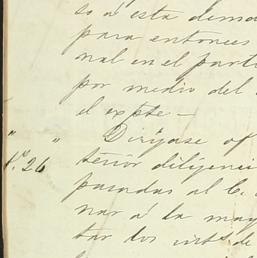 so á esta dema
para entonces
nal en el parti
por medio del
el expte—
" " Dirijase of
Nº 26 tenor diligenci
pasadas al C.
nar á la may
tar los ints. de